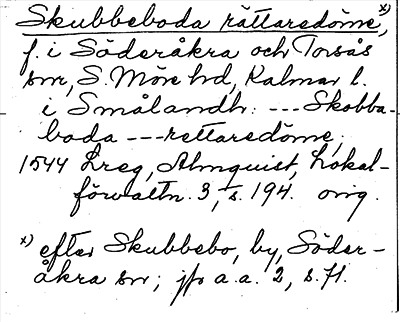 Skubbeboda rättaredöme, x)
f. i Söderåkra och Torsås
snr, S. Möre hd, Kalmar l.
i Smålandh: --- Skobba-
boda --- rettaredöme,
1544 Lreg, Almquist, Lokal-
förvaltn. 3, s. 194. orig.
x) efter Skubbebo, by, Söder-
åkra sn; jfr a.a. 2, s. 71.